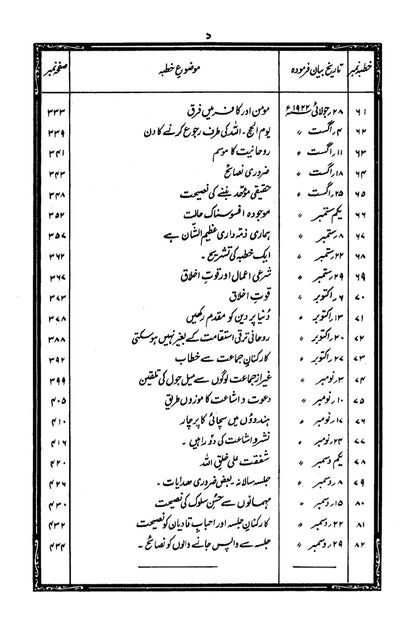 ۵
خطبہ نمبر تاریخ بیان فرمودہ موضوع خطبہ صفحہ نمبر
۶۱ ۲۸؍جولائی ۱۹۲۲ء مؤمن اور کافر میں فرق ۳۳۳
۶۲ ۴؍اگست 〃 یوم الحج۔ اللہ کی طرف رجوع کرنے کا دن ۳۳۹
۶۳ ۱۱؍اگست 〃 روحانیت کا موسم ۳۴۱
۶۴ ۱۸؍اگست 〃 ضروری نصائح ۳۴۳
۶۵ ۲۵؍اگست 〃 حقیقی مؤحد بننے کی نصیحت ۳۴۸
۶۶ یکم ستمبر 〃 موجودہ افسوسناک حالت ۳۵۲
۶۷ ۸؍ستمبر 〃 ہماری ذمہ داری عظیم الشان ہے ۳۵۷
۶۸ ۲۲؍ستمبر 〃 ایک خطبہ کی تشریح۔ ۳۶۲
۶۹ ۲۹؍ستمبر 〃 شرعی اعمال اور قوتِ اخلاق ۳۶۷
۷۰ ۶؍اکتوبر 〃 قوتِ اخلاق ۳۷۳
۷۱ ۱۳؍اکتوبر 〃 دُنیا پر دین کو مقدم رکھیں ۳۷۸
۷۲ ۲۰؍اکتوبر 〃 روحانی ترقی استقامت کے بغیر نہیں ہوسکتی ۳۸۸
۷۳ ۲۷؍اکتوبر 〃 کارکنانِ جماعت سے خطاب ۳۹۲
۷۴ ۳؍نومبر 〃 غیر از جماعت لوگوں سے میل جول کی تلقین ۳۹۹
۷۵ ۱۰؍نومبر 〃 دعوت و اشاعت کا موزوں طریق ۴۰۵
۷۶ ۱۷؍نومبر 〃 ہندوؤں میں سچائی کا پرچار ۴۱۰
۷۷ ۲۴؍نومبر 〃 نشر و اشاعت کی دو راہیں۔ ۴۱۶
۷۸ یکم دسمبر 〃 شفقت علیٰ خلق اللہ ۴۲۰
۷۹ ۸؍دسمبر 〃 جلسہ سالانہ۔ بعض ضروری ہدایات۔ ۴۲۶
۸۰ ۱۵؍دسمبر 〃 مہمانوں سے حسنِ سلوک کی نصیحت ۴۳۰
۸۱ ۲۲؍دسمبر 〃 کارکنانِ جلسہ اور احبابِ قادیان کو نصیحت ۴۳۲
۸۲ ۲۹؍دسمبر 〃 جلسہ سے واپس جانے والوں کو نصائح۔ ۴۳۴